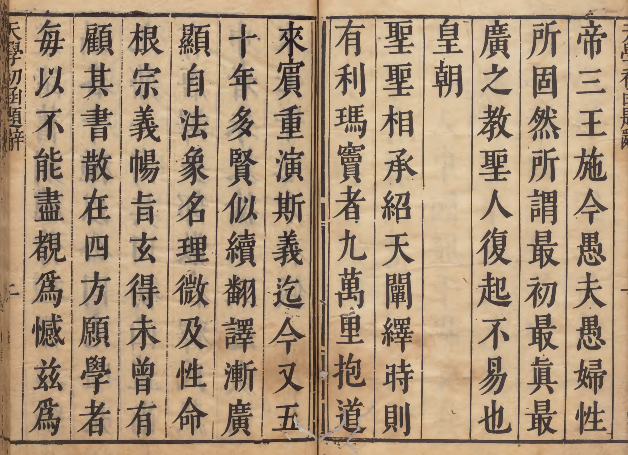 帝三王施今愚夫愚婦性
所固然所謂最初最眞最
廣之教聖人復起不易也
皇朝
聖聖相承紹天闡繹時則
有利瑪竇者九萬里抱道
來賔重演斯義迄今又五
十年多賢似續翻譯漸廣
顯自法象名理微及性命
根宗義暢旨玄得未曾有
顧其書散在四方願學者
每以不能盡覩爲憾兹爲
天學初函題辭 二